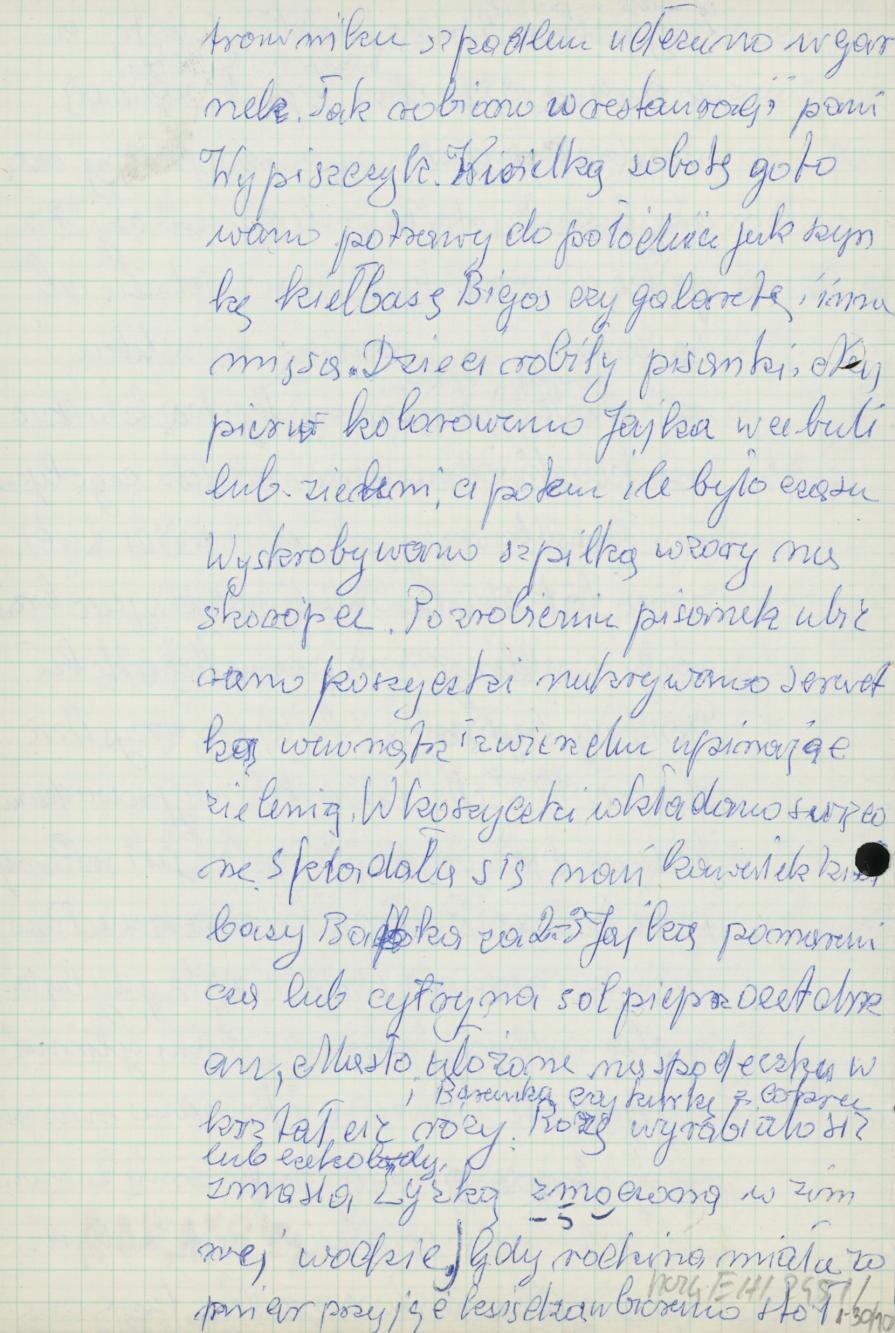 szpadlem uderzano w gar
nek. Tak robiono w restauracji pani
Wypiszczyk. Wielką sobotę goto
wano potrawy do jak szyn
kę kiełbasę Bigos czy galaretę, i inne
mięsa. Dzieci robiły pisanki. Naj
pierw kolorowano Jajka w cebuli
lub zieleni, a potem ile było czasu
Wyskrobywano szpilką wzory na
skorópce. Pozrobieniu pisanek ubie
rano koszyczki nakrywano serwet
ką wewnątrz i zwierzchu upinając
zielenią. W koszyczki wkładano święco
ne. Składała się nań kawałek kieł
basy Babka za 2-3 Jajka pomarań
cza lub cytryna sol pieprz ocet chrz
an, Masło ułożone na spodeczku w
i Baranka czy kurkę z cukru
kształcie rózy. Rozę wyrabiało się
lub czekolady.
zmasła Łyżką zmoczoną w zim
nej wodzie, Gdy rodzina miała za
miar przyjąć księdza ubierano stół